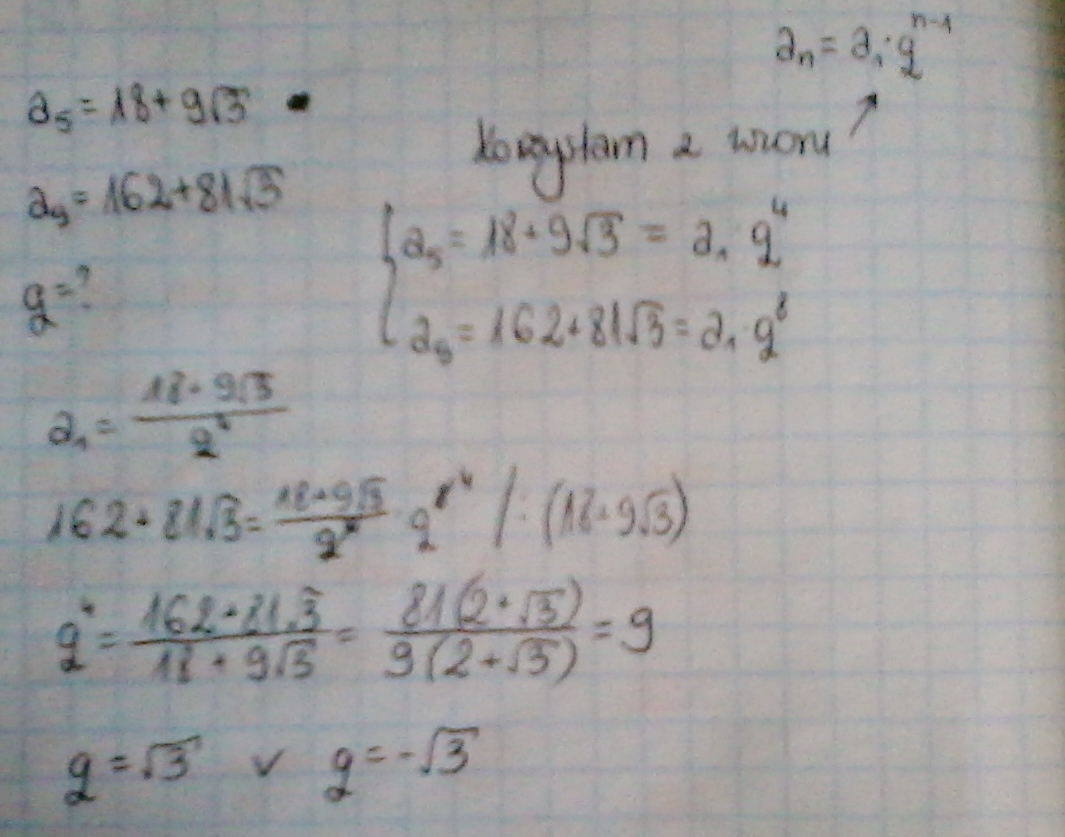 aₙ = a₁·qⁿ⁻¹
a₅ = 18 + 9√3
Korzystam z wzoru ↗
a₉ = 162 + 81√3
{ a₅ = 18 + 9√3 = a₁·q⁴
q = ?
a₉ = 162 + 81√3 = a₁·q⁸
a₁ = (18 + 9√3)/q⁴
162 + 81√3 = (18 + 9√3)/q⁴ · q⁸ ⁴ /:(18 + 9√3)
q⁴ = (162 + 81√3)/(18 + 9√3) = 81(2 + √3)/9(2 + √3) = 9
q = √3 v q = -√3